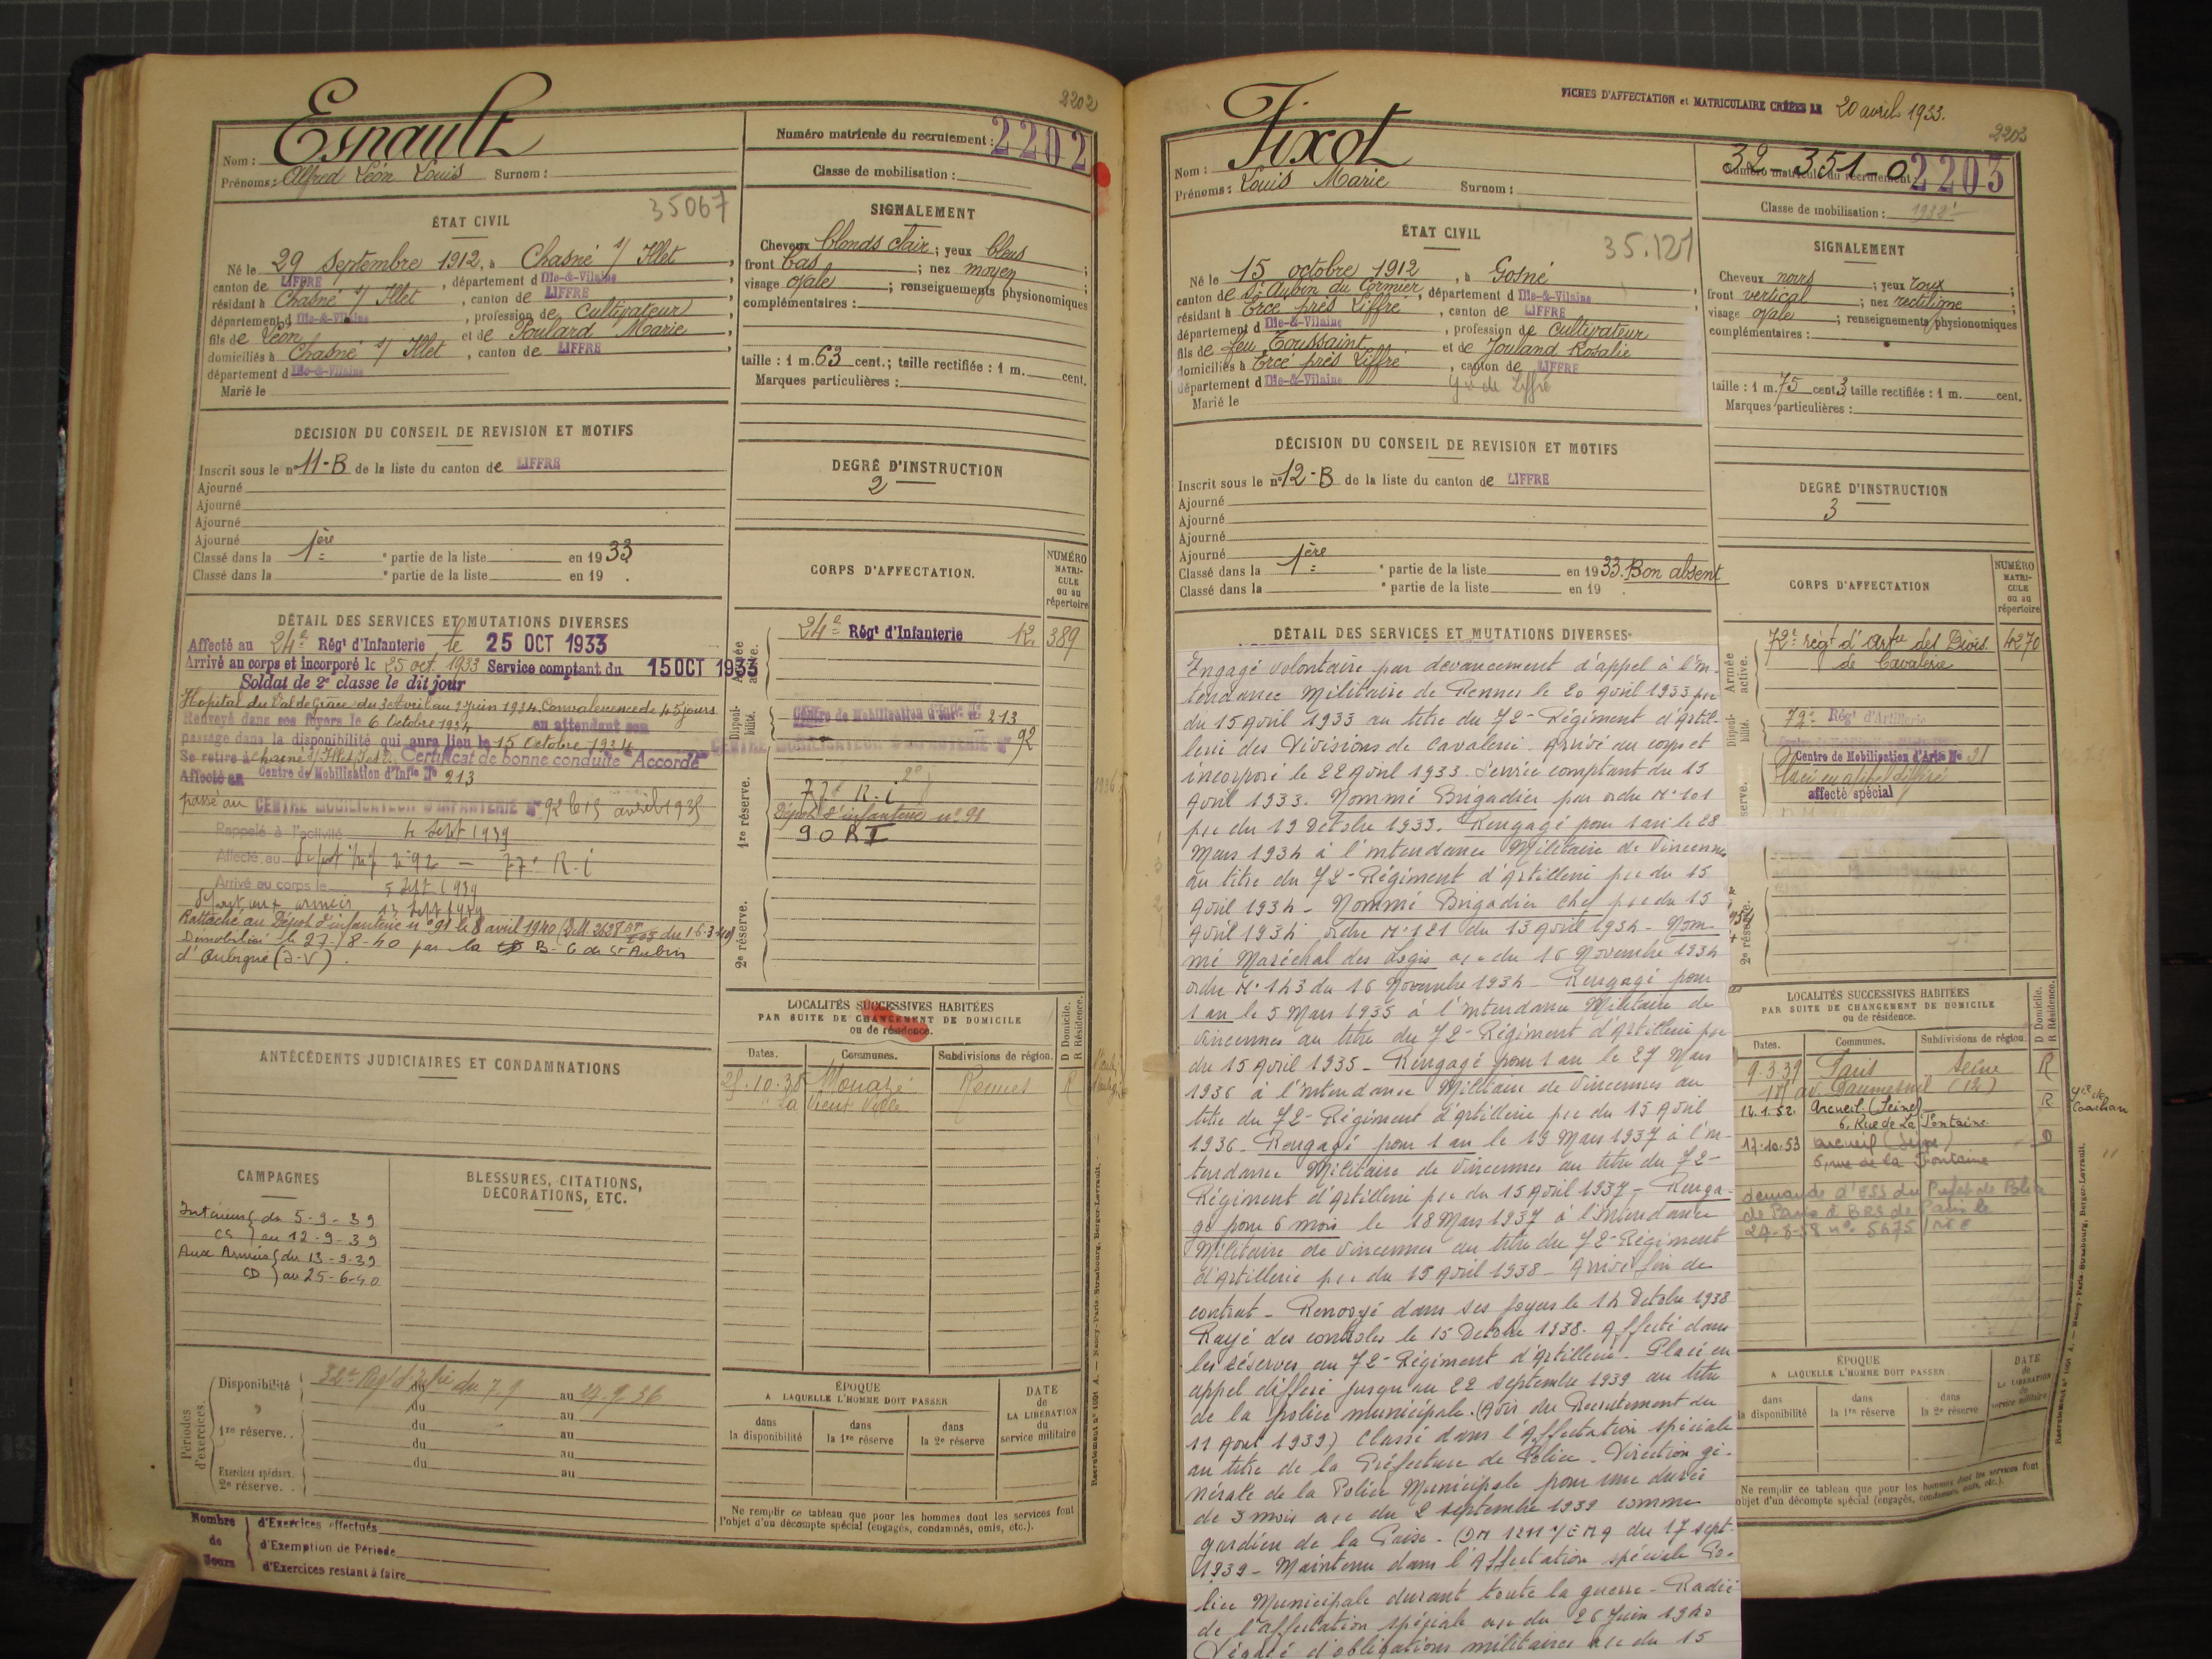 2202
Nom : Esnault
Prénoms : Alfred Léon Louis Surnom :
Numéro matricule du recrutement : 2202
Classe de mobilisation :
35067
ÉTAT CIVIL
Né le 29 septembre 1912, à Chasné s/ Illet,
canton de LIFFRE, département d Ille-&-Vilaine
résidant à Chasné s/ Illet, canton de LIFFRE,
département d Ille-&-Vilaine, profession de cultivateur
fils de Léon et de Poulard Marie,
domiciliés à Chasné s/ Illet, canton de LIFFRE,
département d Ille-&-Vilaine
Marié le
SIGNALEMENT
Cheveux blonds clair ; yeux bleus ;
front bas ; nez moyen ;
visage ovale ; renseignements physionomiques
complémentaires :
taille : 1 m. 63 cent. ; taille rectifiée : 1 m. cent.
Marques particulières :
DÉCISION DU CONSEIL DE REVISION ET MOTIFS
Inscrit sous le n° 11-B de la liste du canton de LIFFRE
Ajourné
Ajourné
Ajourné
Ajourné
Classé dans la 1ère partie de la liste en 1933
Classé dans la partie de la liste en 19 .
DEGRÉ D'INSTRUCTION
2
DÉTAIL DES SERVICES ET MUTATIONS DIVERSES
Affecté au 24e Régt d'Infanterie le 25 OCT 1933
Arrivé au corps et incorporé le 25 oct. 1933 Service comptant du 15 OCT 1933
Soldat de 2e classe le dit jour
Hopital du Val de Grâce du 30 avril au 9 juin 1934. Convalescence de 45 jours
Renvoyé dans ses foyers le 6 Octobre 1934 en attendant son
passage dans la disponibilité qui aura lieu le 15 Octobre 1934
Se retire à Chasné s/Illet, I et V. Certificat de bonne conduite "Accordé"
Affecté au Centre de Mobilisation d'Infie N° 213
passé au CENTRE MOBILISATEUR D'INFANTERIE N° 92 le 15 avril 1935
Rappelé à l'activité 4 Sept 1939
Affecté au Dépot Inf n° 92 — 77e R.I
Arrivé au corps le 5 Sept 1939
Départ aux armées 13 Sept 1939
Rattaché au Dépot d'infanterie n° 91 le 8 avril 1940
Démobilisé le 27/8-40 par la B-6 de St Aubin
d'Aubigné (I-V).
CORPS D'AFFECTATION.
NUMÉRO MATRICULE ou au répertoire
Armée active.
24e Régt d'Infanterie 12. 389
Disponibilité.
Centre de Mobilisation d'Infie N° 213
CENTRE MOBILISATEUR D'INFANTERIE N° 92
1re réserve.
77e R.I
Dépot d'infanterie n° 91
90 RI
2e réserve.
ANTÉCÉDENTS JUDICIAIRES ET CONDAMNATIONS
LOCALITÉS SUCCESSIVES HABITÉES
PAR SUITE DE CHANGEMENT DE DOMICILE
ou de résidence.
D Domicile.
R Résidence.
Dates. Communes. Subdivisions de région.
Mouazé Rennes R
La Vieux Ville
CAMPAGNES
Intérieur du 5-9-39
CS au 12-9-39
Aux Armées du 13-9-39
CD au 25-6-40
BLESSURES, CITATIONS,
DÉCORATIONS, ETC.
Périodes d'exercices.
Disponibilité du 7.9 au 27.9.36
du au
1re réserve. . du au
du au
Exercices spéciaux. du au
2e réserve. .
ÉPOQUE
A LAQUELLE L'HOMME DOIT PASSER
dans la disponibilité
dans la 1re réserve
dans la 2e réserve
DATE de LA LIBÉRATION du service militaire
Ne remplir ce tableau que pour les hommes dont les services font
l'objet d'un décompte spécial (engagés, condamnés, omis, etc.).
Nombre de Jours
d'Exercices effectués
d'Exemption de Période
d'Exercices restant à faire
Recrutement N° 1001 A. — Nancy-Paris-Strasbourg, Berger-Levrault.
FICHES D'AFFECTATION et MATRICULAIRE CRÉÉES LE 20 avril 1933.
2203
Nom : Fixot
Prénoms : Louis Marie Surnom :
32-351-0
Numéro matricule du recrutement 2203
Classe de mobilisation : 1932
35.121
ÉTAT CIVIL
Né le 15 octobre 1912, à Gosné,
canton de St Aubin du Cormier, département d Ille-&-Vilaine
résidant à Ercé près Liffré, canton de LIFFRE,
département d Ille-&-Vilaine, profession de cultivateur
fils de feu Toussaint et de Jouland Rosalie
domiciliés à Ercé près Liffré, canton de LIFFRE
département d Ille-&-Vilaine
Marié le
SIGNALEMENT
Cheveux noirs ; yeux roux ;
front vertical ; nez rectiligne ;
visage ovale ; renseignements physionomiques
complémentaires :
taille : 1 m. 75 cent. 3 taille rectifiée : 1 m. cent.
Marques particulières :
DÉCISION DU CONSEIL DE REVISION ET MOTIFS
Inscrit sous le n° 12-B de la liste du canton de LIFFRE
Ajourné
Ajourné
Ajourné
Ajourné
Classé dans la 1ère partie de la liste en 1933. Bon absent
Classé dans la partie de la liste en 19 .
DEGRÉ D'INSTRUCTION
3
DÉTAIL DES SERVICES ET MUTATIONS DIVERSES
Engagé volontaire par devancement d'appel à l'In-
tendance Militaire de Rennes le 20 Avril 1933 pcc
du 15 Avril 1933 au titre du 72e Régiment d'Artil-
lerie des Divisions de Cavalerie. Arrivé au corps et
incorporé le 22 Avril 1933. Service comptant du 15
Avril 1933. Nommé Brigadier par ordre N° 101
pcc du 19 Octobre 1933. Rengagé pour 1 an le 28
Mars 1934 à l'intendance Militaire de Vincennes
au titre du 72e Régiment d'Artillerie pcc du 15
Avril 1934 - Nommé Brigadier chef pcc du 15
Avril 1934 ordre N° 121 du 13 Avril 1934 - Nom-
mé Maréchal des Logis acc du 16 Novembre 1934
ordre N° 143 du 16 Novembre 1934 - Rengagé pour
1 an le 5 Mars 1935 à l'intendance Militaire de
Vincennes au titre du 72e Régiment d'Artillerie pcc
du 15 Avril 1935 - Rengagé pour 1 an le 27 Mars
1936 à l'intendance Militaire de Vincennes au
titre du 72e Régiment d'Artillerie pcc du 15 Avril
1936 - Rengagé pour 1 an le 19 Mars 1937 à l'in-
tendance Militaire de Vincennes au titre du 72e
Régiment d'Artillerie pcc du 15 Avril 1937 - Renga-
gé pour 6 mois le 18 Mars 1937 à l'intendance
Militaire de Vincennes au titre du 72e Régiment
d'Artillerie pcc du 15 Avril 1938 - Arrivé fin de
contrat - Renvoyé dans ses foyers le 14 Octobre 1938
Rayé des contrôles le 15 Octobre 1938. Affecté dans
les réserves au 72e Régiment d'Artillerie - Placé en
appel différé jusqu'au 22 septembre 1939 au titre
de la police municipale. (Avis du Recrutement du
11 Août 1939) Classé dans l'Affectation spéciale
au titre de la Préfecture de Police - Direction gé-
nérale de la Police Municipale pour une durée
de 3 mois acc du 2 septembre 1939 comme
gardien de la Paix - (DM 1211 Y EMA du 17 sept
1939 - Maintenu dans l'Affectation spéciale Po-
lice Municipale durant toute la guerre - Radié
de l'affectation spéciale acc du 26 Juin 1940
Dégagé d'obligations militaires acc du 15
CORPS D'AFFECTATION
NUMÉRO MATRICULE ou au répertoire
Armée active.
72e régt d'Artie des Divis. 4270
de Cavalerie
Disponibilité.
72e Régt d'Artillerie
Centre de Mobilisation d'Artie N° 31
Placé en appel différé
affecté spécial
2e réserve.
LOCALITÉS SUCCESSIVES HABITÉES
PAR SUITE DE CHANGEMENT DE DOMICILE
ou de résidence.
D Domicile.
R Résidence.
Dates. Communes. Subdivisions de région
9.3.39 Paris Seine R
av. Daumesnil (12)
14.1.52. Arcueil (Seine) R
6, Rue de La Fontaine
17.10.53 Arcueil (Seine) D
5, rue de la Fontaine
demande d'ESS du Préfet de Police
de Paris à BRS de Paris le
24-8-58 n° 5675
ÉPOQUE
A LAQUELLE L'HOMME DOIT PASSER
dans la disponibilité
dans la 1re réserve
dans la 2e réserve
DATE de LA LIBÉRATION du service militaire
Ne remplir ce tableau que pour les hommes dont les services font
objet d'un décompte spécial (engagés, condamnés, omis, etc.).
Recrutement N° 1001 A. — Nancy-Paris-Strasbourg, Berger-Levrault.